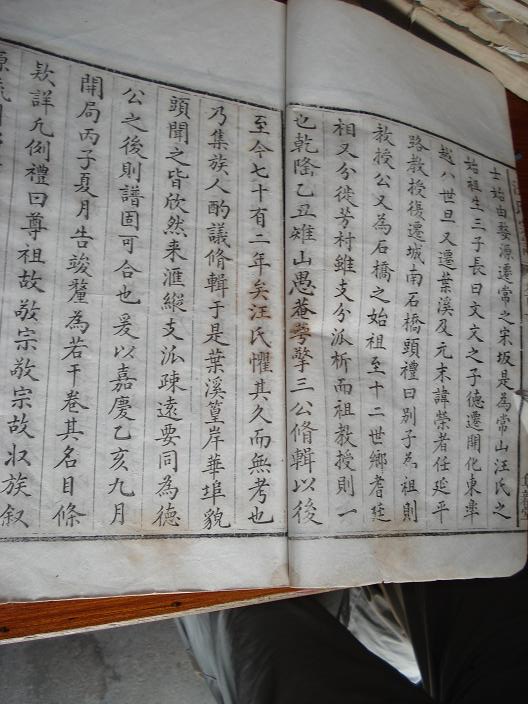 士始由婺源遷常之宋坂是為常山汪氏之
始祖生三子長曰文文之子德遷開化東莘
越八世旦又遷葉溪及元末諱榮者任延平
路教授復遷城南石橋頭禮曰別子為祖則
教授公又為石橋之始祖至十二世鄉耆廷
相又分徙芳村雖支分泒析而祖教授則一
也乾隆乙丑雉山愚菴雩擎三公脩輯以後
至今七十有二年矣汪氏懼其久而無考也
乃集族人酌議脩輯于是葉溪篁岸華埠貌
頭聞之皆欣然来滙縱支泒疎遠要同為德
公之後則譜固可合也爰以嘉慶乙亥九月
開局丙子夏月告竣釐為若干卷其名目條
欵詳凡例禮曰尊祖故敬宗敬宗故収族叙